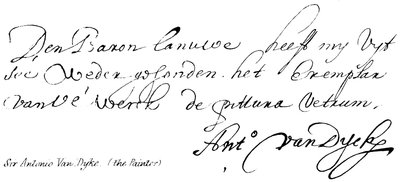 Den Baron Canuwe heeft my Vyt
See Weder gesonden het Exemplar
van Ué Werck de pittura Vetrum,
Anto van Dyck
Sir Antonio Van Dyke (the Painter)